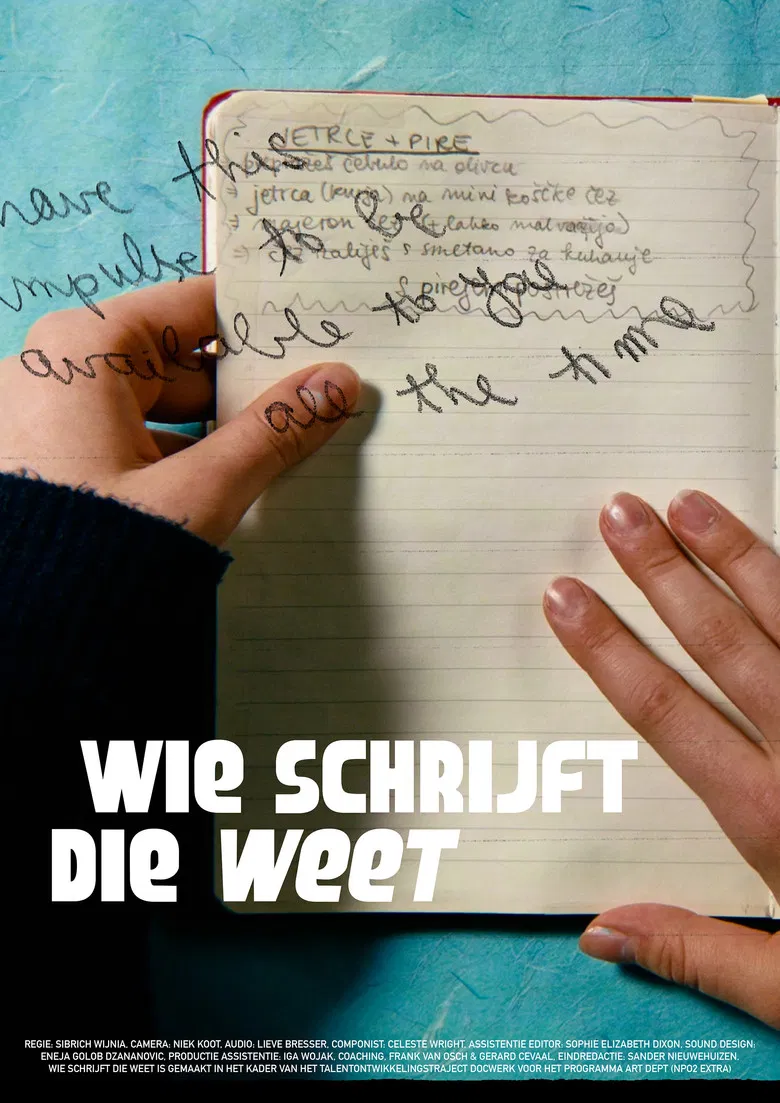 JETRCE + PIRE
prepražeš čebulo na olivcu
→ jetrca (kurja) na mini koščke čez
→ majeron čez (+ lahko malvazija)
→ čez zaliješ s smetano za kuhanje
s pirejem postrežeš
have this
impulse to be
available to you
all the time
WIE SCHRIJFT
DIE WEET
REGIE: SIBRICH WIJNIA, CAMERA: NIEK KOOT, AUDIO: LIEVE BRESSER, COMPONIST: CELESTE WRIGHT, ASSISTENTIE EDITOR: SOPHIE ELIZABETH DIXON, SOUND DESIGN:
ENEJA GOLOB DZANANOVIC, PRODUCTIE ASSISTENTIE: IGA WOJAK, COACHING, FRANK VAN OSCH & GERARD CEVAAL, EINDREDACTIE: SANDER NIEUWEHUIZEN,
WIE SCHRIJFT DIE WEET IS GEMAAKT IN HET KADER VAN HET TALENTONTWIKKELINGSTRAJECT DOCWERK VOOR HET PROGRAMMA ART DEPT (NPO2 EXTRA)